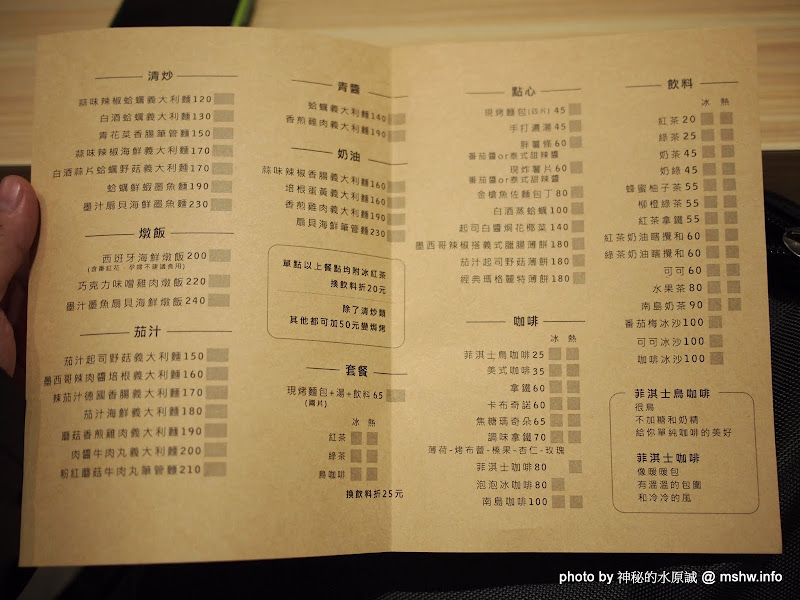 清炒
蒜味辣椒蛤蠣義大利麵120
白酒蛤蠣義大利麵130
青花菜香腸筆管麵150
蒜味辣椒海鮮義大利麵170
白酒蒜片蛤蠣野菇義大利麵170
蛤蠣鮮蝦墨魚麵190
墨汁扇貝海鮮墨魚麵230
燉飯
西班牙海鮮燉飯200
(含番紅花 孕婦不建議食用)
巧克力味噌雞肉燉飯220
墨汁墨魚扇貝海鮮燉飯240
茄汁
茄汁起司野菇義大利麵150
墨西哥辣肉醬培根義大利麵160
辣茄汁德國香腸義大利麵170
茄汁海鮮義大利麵180
蘑菇香煎雞肉義大利麵190
肉醬牛肉丸義大利麵200
粉紅蘑菇牛肉丸筆管麵210
青醬
蛤蠣義大利麵140
香煎雞肉義大利麵190
奶油
蒜味辣椒香腸義大利麵160
培根蛋黃義大利麵160
香煎雞肉義大利麵190
扇貝海鮮筆管麵230
單點以上餐點均附冰紅茶
換飲料折20元
除了清炒類
其他都可加50元變焗烤
套餐
現烤麵包+湯+飲料65
(兩片)
冰 熱
紅茶
綠茶
鳥咖啡
換飲料折25元
點心
現烤麵包(四片)45
手打濃湯45
胖薯條60
番茄醬or泰式甜辣醬
現炸薯片60
番茄醬or泰式甜辣醬
金槍魚佐麵包丁80
白酒蒸蛤蠣100
起司白醬焗花椰菜140
墨西哥辣椒搭義式臘腸薄餅180
茄汁起司野菇薄餅180
經典瑪格麗特薄餅180
咖啡
冰 熱
菲淇士鳥咖啡25
美式咖啡35
拿鐵60
卡布奇諾60
焦糖瑪奇朵65
調味拿鐵70
薄荷-烤布蕾-榛果-杏仁-玫瑰
菲淇士咖啡80
泡泡冰咖啡80
南島咖啡100
飲料
冰 熱
紅茶20
綠茶25
奶茶45
奶綠45
蜂蜜柚子茶55
柳橙綠茶55
紅茶拿鐵55
紅茶奶油瞎攪和60
綠茶奶油瞎攪和60
可可60
水果茶80
南島奶茶90
番茄梅冰沙100
可可冰沙100
咖啡冰沙100
菲淇士鳥咖啡
很鳥
不加糖和奶精
給你單純咖啡的美好
菲淇士咖啡
像暖暖包
有溫溫的包圍
和冷冷的風
photo by 神秘的水原誠 @ mshw.info